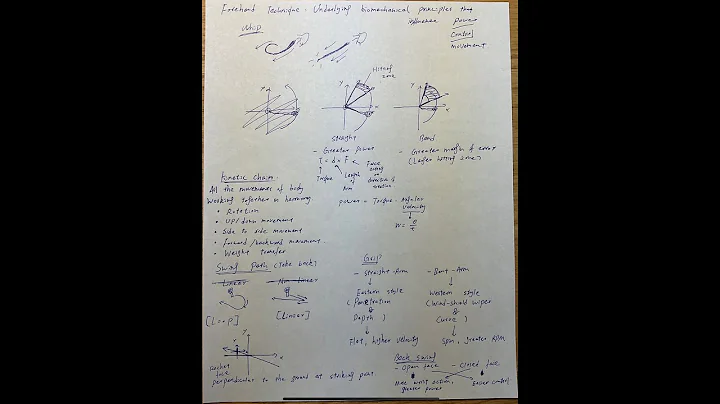 Forehand Technique - Underlying biomechanical principles that
influence Power
Control
Movement
Whip
Hitting zone
y
x
y
x
y
x
Straight
- Greater power
T = d x F
Torque
Length of Arm
Force
direction of rotation
Power = Torque · Angular velocity
W = θ/t
Bend
- Greater margin of error
(Larger hitting zone)
Kinetic chain -
All the movements of body
working together in harmony
• Rotation
• Up/down movement
• Side to side movement
• Forward/backward movement
• Weight transfer
Swing Path (Take back)
- Linear
- Non Linear
[Loop]
[Linear]
y
x
racket face
perpendicular to the ground at striking point
Grip
- Straight-Arm
Eastern style
(Penetration
&
Depth)
Flat, higher velocity
- Bent-Arm
Western style
(Wind-shield wiper
&
Curve)
Spin, greater RPM
Back Swing
- Open face
- Closed face
More wrist action,
greater power
Easier control